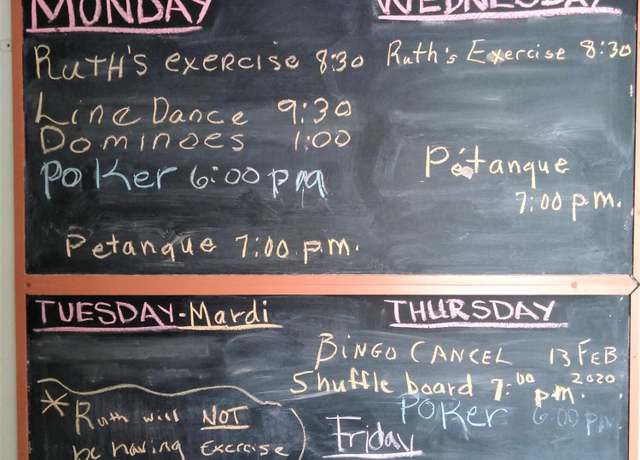 MONDAY
Ruth's exercise 8:30
Line Dance 9:30
Dominoes 1:00
Poker 6:00 pm
Petanque 7:00 p.m.
WEDNESDAY
Ruth's Exercise 8:30
Pétanque
7:00 p.m.
TUESDAY-Mardi
* Ruth will NOT
be having Exercise
THURSDAY
BINGO CANCEL 13 FEB
2020
Shuffle board 7:00 p.m.
POKer 6:00 pm
Friday